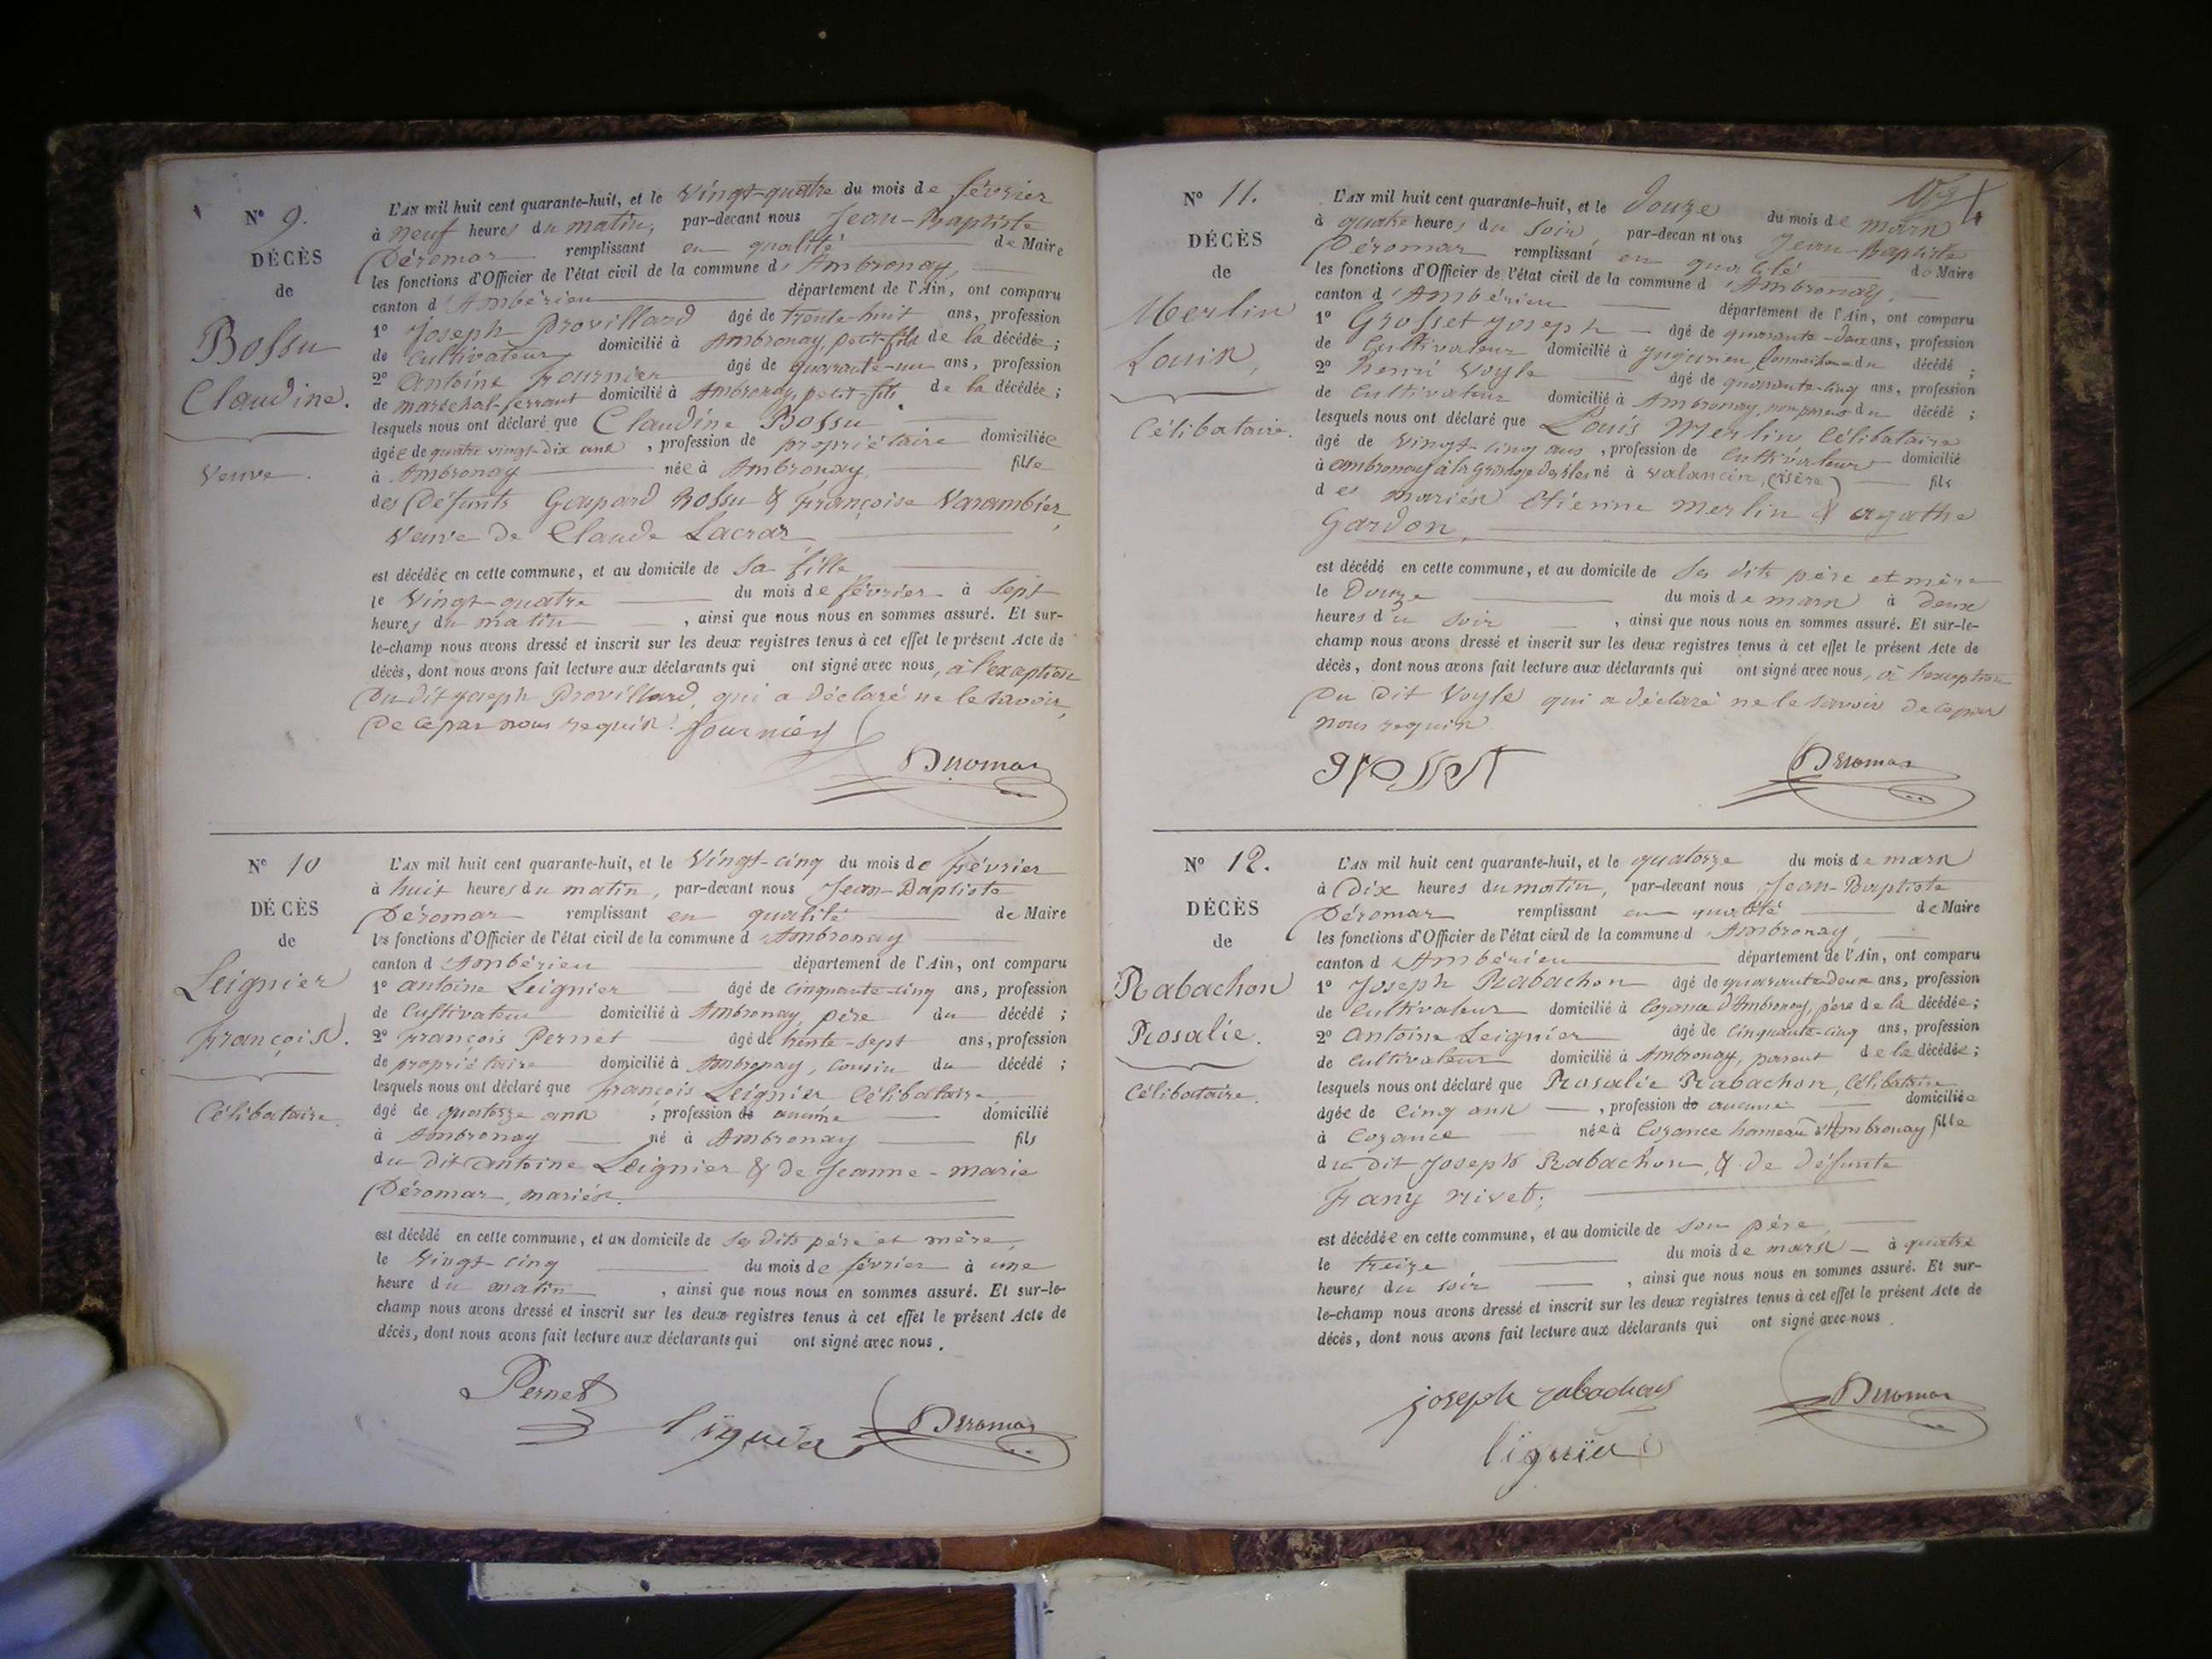 N° 9.
DÉCÈS
de
Bossu
Claudine.
Veuve.
L'AN mil huit cent quarante-huit, et le vingt-quatre du mois de février
à neuf heures du matin, par-devant nous Jean-Baptiste
Déromas remplissant en qualité de Maire
les fonctions d'Officier de l'état civil de la commune d'Ambronay,
canton d'Ambérieu département de l'Ain, ont comparu
1° Joseph Provillard âgé de trente-huit ans, profession
de cultivateur domicilié à Ambronay, petit-fils de la décédée;
2° Antoine Fournier âgé de quarante-un ans, profession
de maréchal-ferrant domicilié à Ambronay, petit-fils de la décédée;
lesquels nous ont déclaré que Claudine Bossu
âgée de quatre vingt-dix ans, profession de propriétaire domiciliée
à Ambronay née à Ambronay fille
des défunts Gaspard Bossu & Françoise Varambier,
Veuve de Claude Lacras
est décédée en cette commune, et au domicile de sa fille
le vingt-quatre du mois de février à sept
heures du matin, ainsi que nous nous en sommes assuré. Et sur-
le-champ nous avons dressé et inscrit sur les deux registres tenus à cet effet le présent Acte de
décès, dont nous avons fait lecture aux déclarants qui ont signé avec nous, à l'exception
du dit Joseph Provillard, qui a déclaré ne le savoir,
de ce par nous requis. fournier
Deromas
N° 10
DÉCÈS
de
Leignier
François.
Célibataire.
L'AN mil huit cent quarante-huit, et le vingt-cinq du mois de février
à huit heures du matin, par-devant nous Jean-Baptiste
Déromas remplissant en qualité de Maire
les fonctions d'Officier de l'état civil de la commune d'Ambronay
canton d'Ambérieu département de l'Ain, ont comparu
1° antoine Leignier âgé de cinquante-cinq ans, profession
de Cultivateur domicilié à Ambronay, père du décédé;
2° françois Pernet âgé de trente-sept ans, profession
de propriétaire domicilié à Ambronay, cousin du décédé;
lesquels nous ont déclaré que françois Leignier Célibataire,
âgé de quatorze ans, profession de aucune domicilié
à Ambronay né à Ambronay fils
du dit antoine Leignier & de Jeanne-marie
Déromas, mariés.
est décédé en cette commune, et au domicile de ses dits père et mère,
le vingt-cinq du mois de février à une
heure du matin, ainsi que nous nous en sommes assuré. Et sur-le-
champ nous avons dressé et inscrit sur les deux registres tenus à cet effet le présent Acte de
décès, dont nous avons fait lecture aux déclarants qui ont signé avec nous.
Pernet
Deromas
N° 11.
DÉCÈS
de
Merlin
Louis,
Célibataire.
L'AN mil huit cent quarante-huit, et le douze du mois de mars
à quatre heures du soir, par-devant nous Jean-Baptiste
Déromas remplissant en qualité de Maire
les fonctions d'Officier de l'état civil de la commune d'Ambronay,
canton d'Ambérieu département de l'Ain, ont comparu
1° Grosset Joseph âgé de quarante-deux ans, profession
de Cultivateur domicilié à Jujurieu, connaissance du décédé;
2° henri Voyle âgé de quarante-cinq ans, profession
de cultivateur domicilié à Ambronay, non parent du décédé;
lesquels nous ont déclaré que Louis Merlin, Célibataire
âgé de vingt-cinq ans, profession de cultivateur domicilié
à ambronay à la Grange des né à Valancin, (isère) fils
des mariés Etienne Merlin & agathe
Gardon,
est décédé en cette commune, et au domicile de ses dits père et mère
le Douze du mois de mars à deux
heures du soir, ainsi que nous nous en sommes assuré. Et sur-le-
champ nous avons dressé et inscrit sur les deux registres tenus à cet effet le présent Acte de
décès, dont nous avons fait lecture aux déclarants qui ont signé avec nous, à l'exception
du dit Voyle qui a déclaré ne le savoir de ce par
nous requis
grosset
Deromas
N° 12.
DÉCÈS
de
Rabachon
Rosalie.
Célibataire.
L'AN mil huit cent quarante-huit, et le quatorze du mois de mars
à Dix heures du matin, par-devant nous Jean-Baptiste
Déromas remplissant en qualité de Maire
les fonctions d'Officier de l'état civil de la commune d'Ambronay,
canton d'Ambérieu département de l'Ain, ont comparu
1° Joseph Rabachon âgé de quarante-deux ans, profession
de Cultivateur domicilié à Cozance d'Ambronay, père de la décédée;
2° antoine Leignier âgé de cinquante-cinq ans, profession
de Cultivateur domicilié à Ambronay, parent de la décédée;
lesquels nous ont déclaré que Rosalie Rabachon, Célibataire
âgée de cinq ans, profession de aucune domiciliée
à Cozance née à Cozance hameau d'Ambronay fille
du dit Joseph Rabachon, & de défunte
Frany nivet;
est décédée en cette commune, et au domicile de son père,
le treize du mois de mars à quatre
heures du soir, ainsi que nous nous en sommes assuré. Et sur-
le-champ nous avons dressé et inscrit sur les deux registres tenus à cet effet le présent Acte de
décès, dont nous avons fait lecture aux déclarants qui ont signé avec nous.
joseph rabachon
Deromas
liguier